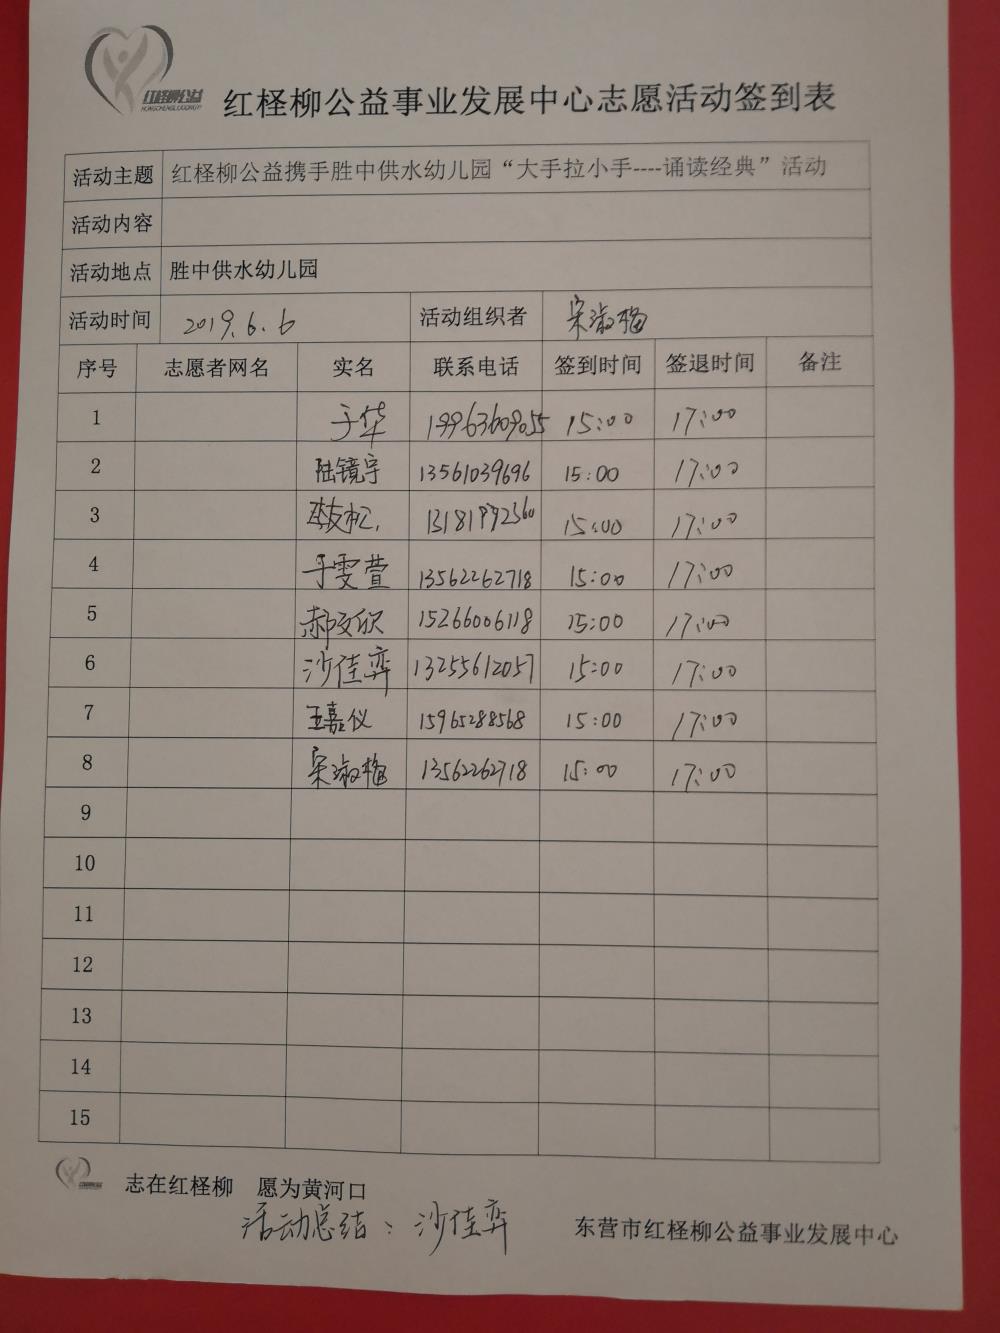 红柽柳公益
HONGCHENGLIUGONGYI
红柽柳公益事业发展中心志愿活动签到表
活动主题 红柽柳公益携手胜中供水幼儿园“大手拉小手----诵读经典”活动
活动内容
活动地点 胜中供水幼儿园
活动时间 2019.6.6 活动组织者 宋淑梅
序号 志愿者网名 实名 联系电话 签到时间 签退时间 备注
1 于华 19963609055 15:00 17:00
2 陆镜宇 13561039696 15:00 17:00
3 李友松 13181992360 15:00 17:00
4 于雯萱 13562262718 15:00 17:00
5 郝文欣 15266006118 15:00 17:00
6 沙佳弈 13255612057 15:00 17:00
7 王嘉仪 15965288568 15:00 17:00
8 宋淑梅 13562262718 15:00 17:00
9
10
11
12
13
14
15
志在红柽柳 愿为黄河口
活动总结：沙佳弈
东营市红柽柳公益事业发展中心